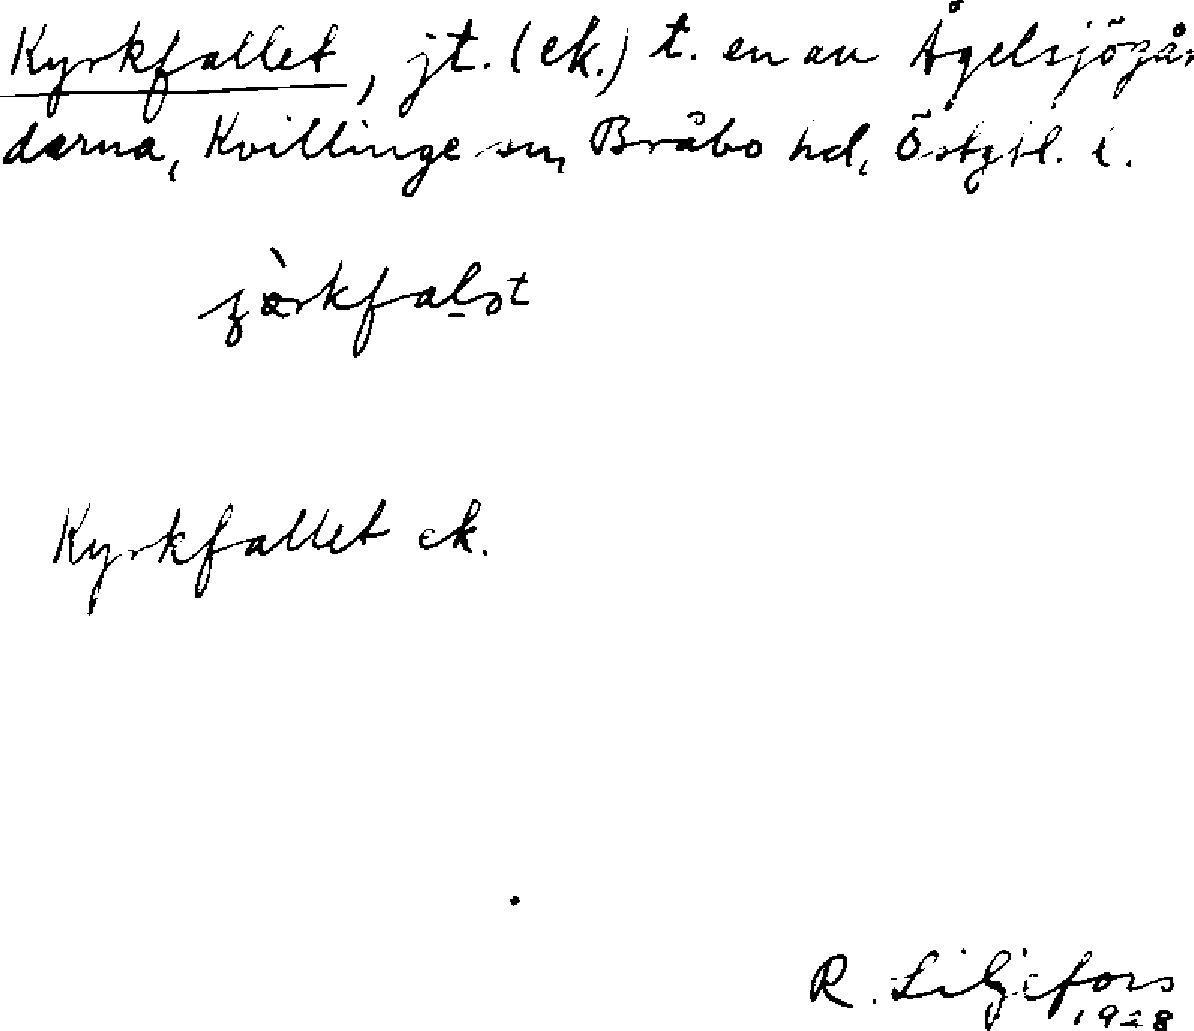 Kyrkfallet, jt. (ek.) t. en av Ågelsjögår
darna, Kvillinge sn, Bråbo hd, Östgtl. l.
Kyrkfallet ek.
R. Liljefors
1928